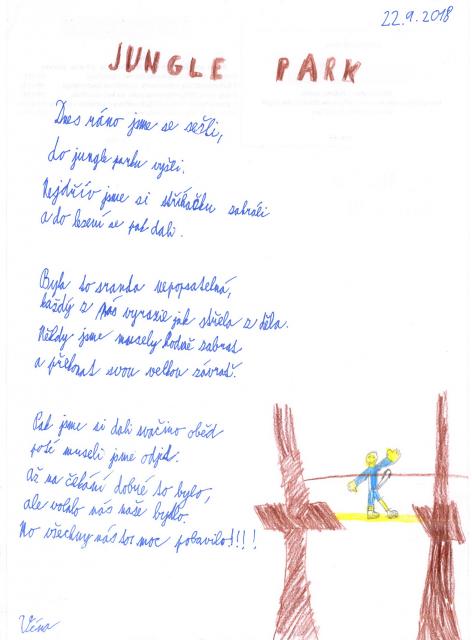 22.9.2018
JUNGLE PARK
Dnes ráno jsme se sešli,
do jungle parku vyšli.
Nejdřív jsme si stříkačku zahráli
a do lezení se pak dali.
Byla to sranda nepopsatelná,
každý z nás vyrazil jak střela z děla.
Někdy jsme musely hodně zabrat
a překonat svou velkou závrať.
Pak jsme si dali svačino oběd
poté museli jsme odjet.
Až na čekání dobré to bylo,
ale volalo nás naše bydlo.
No všechny nás to moc pobavilo!!!!